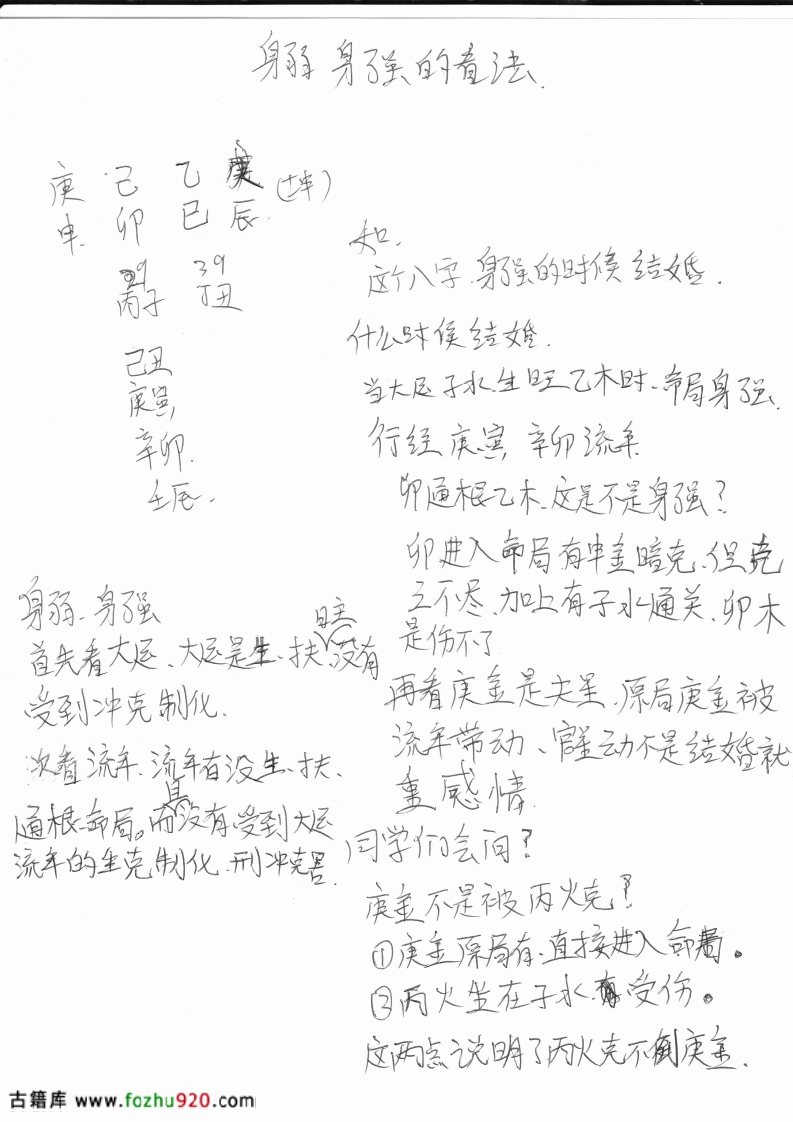 身弱 身强的看法.
庚 己 乙 庚 (坤)
申 卯 巳 辰
29 39
丙子 丁丑
己丑
庚寅
辛卯
壬辰
身弱、身强
首先看大运、大运是生、扶日主、没有
受到冲克制化.
次看流年、流年有没生、扶、
通根命局。而且没有受到大运
流年的生克制化、刑冲克害.
如.
这个八字.身强的时候结婚.
什么时侯结婚.
当大运子水.生旺乙木时、命局身强.
行经庚寅 辛卯流年
卯通根乙木.这是不是身强?
卯进入命局有申金暗克.但克
之不尽.加上有子水通关、卯木
是伤不了
再看庚金是夫星.原局庚金被
流年带动、官星动不是结婚就
重感情.
同学们会问?
庚金不是被丙火克?
①庚金原局有、直接进入命局。
②丙火坐在子水有受伤。
这两点说明了丙火克不倒庚金.
古籍库 www.fozhu920.com